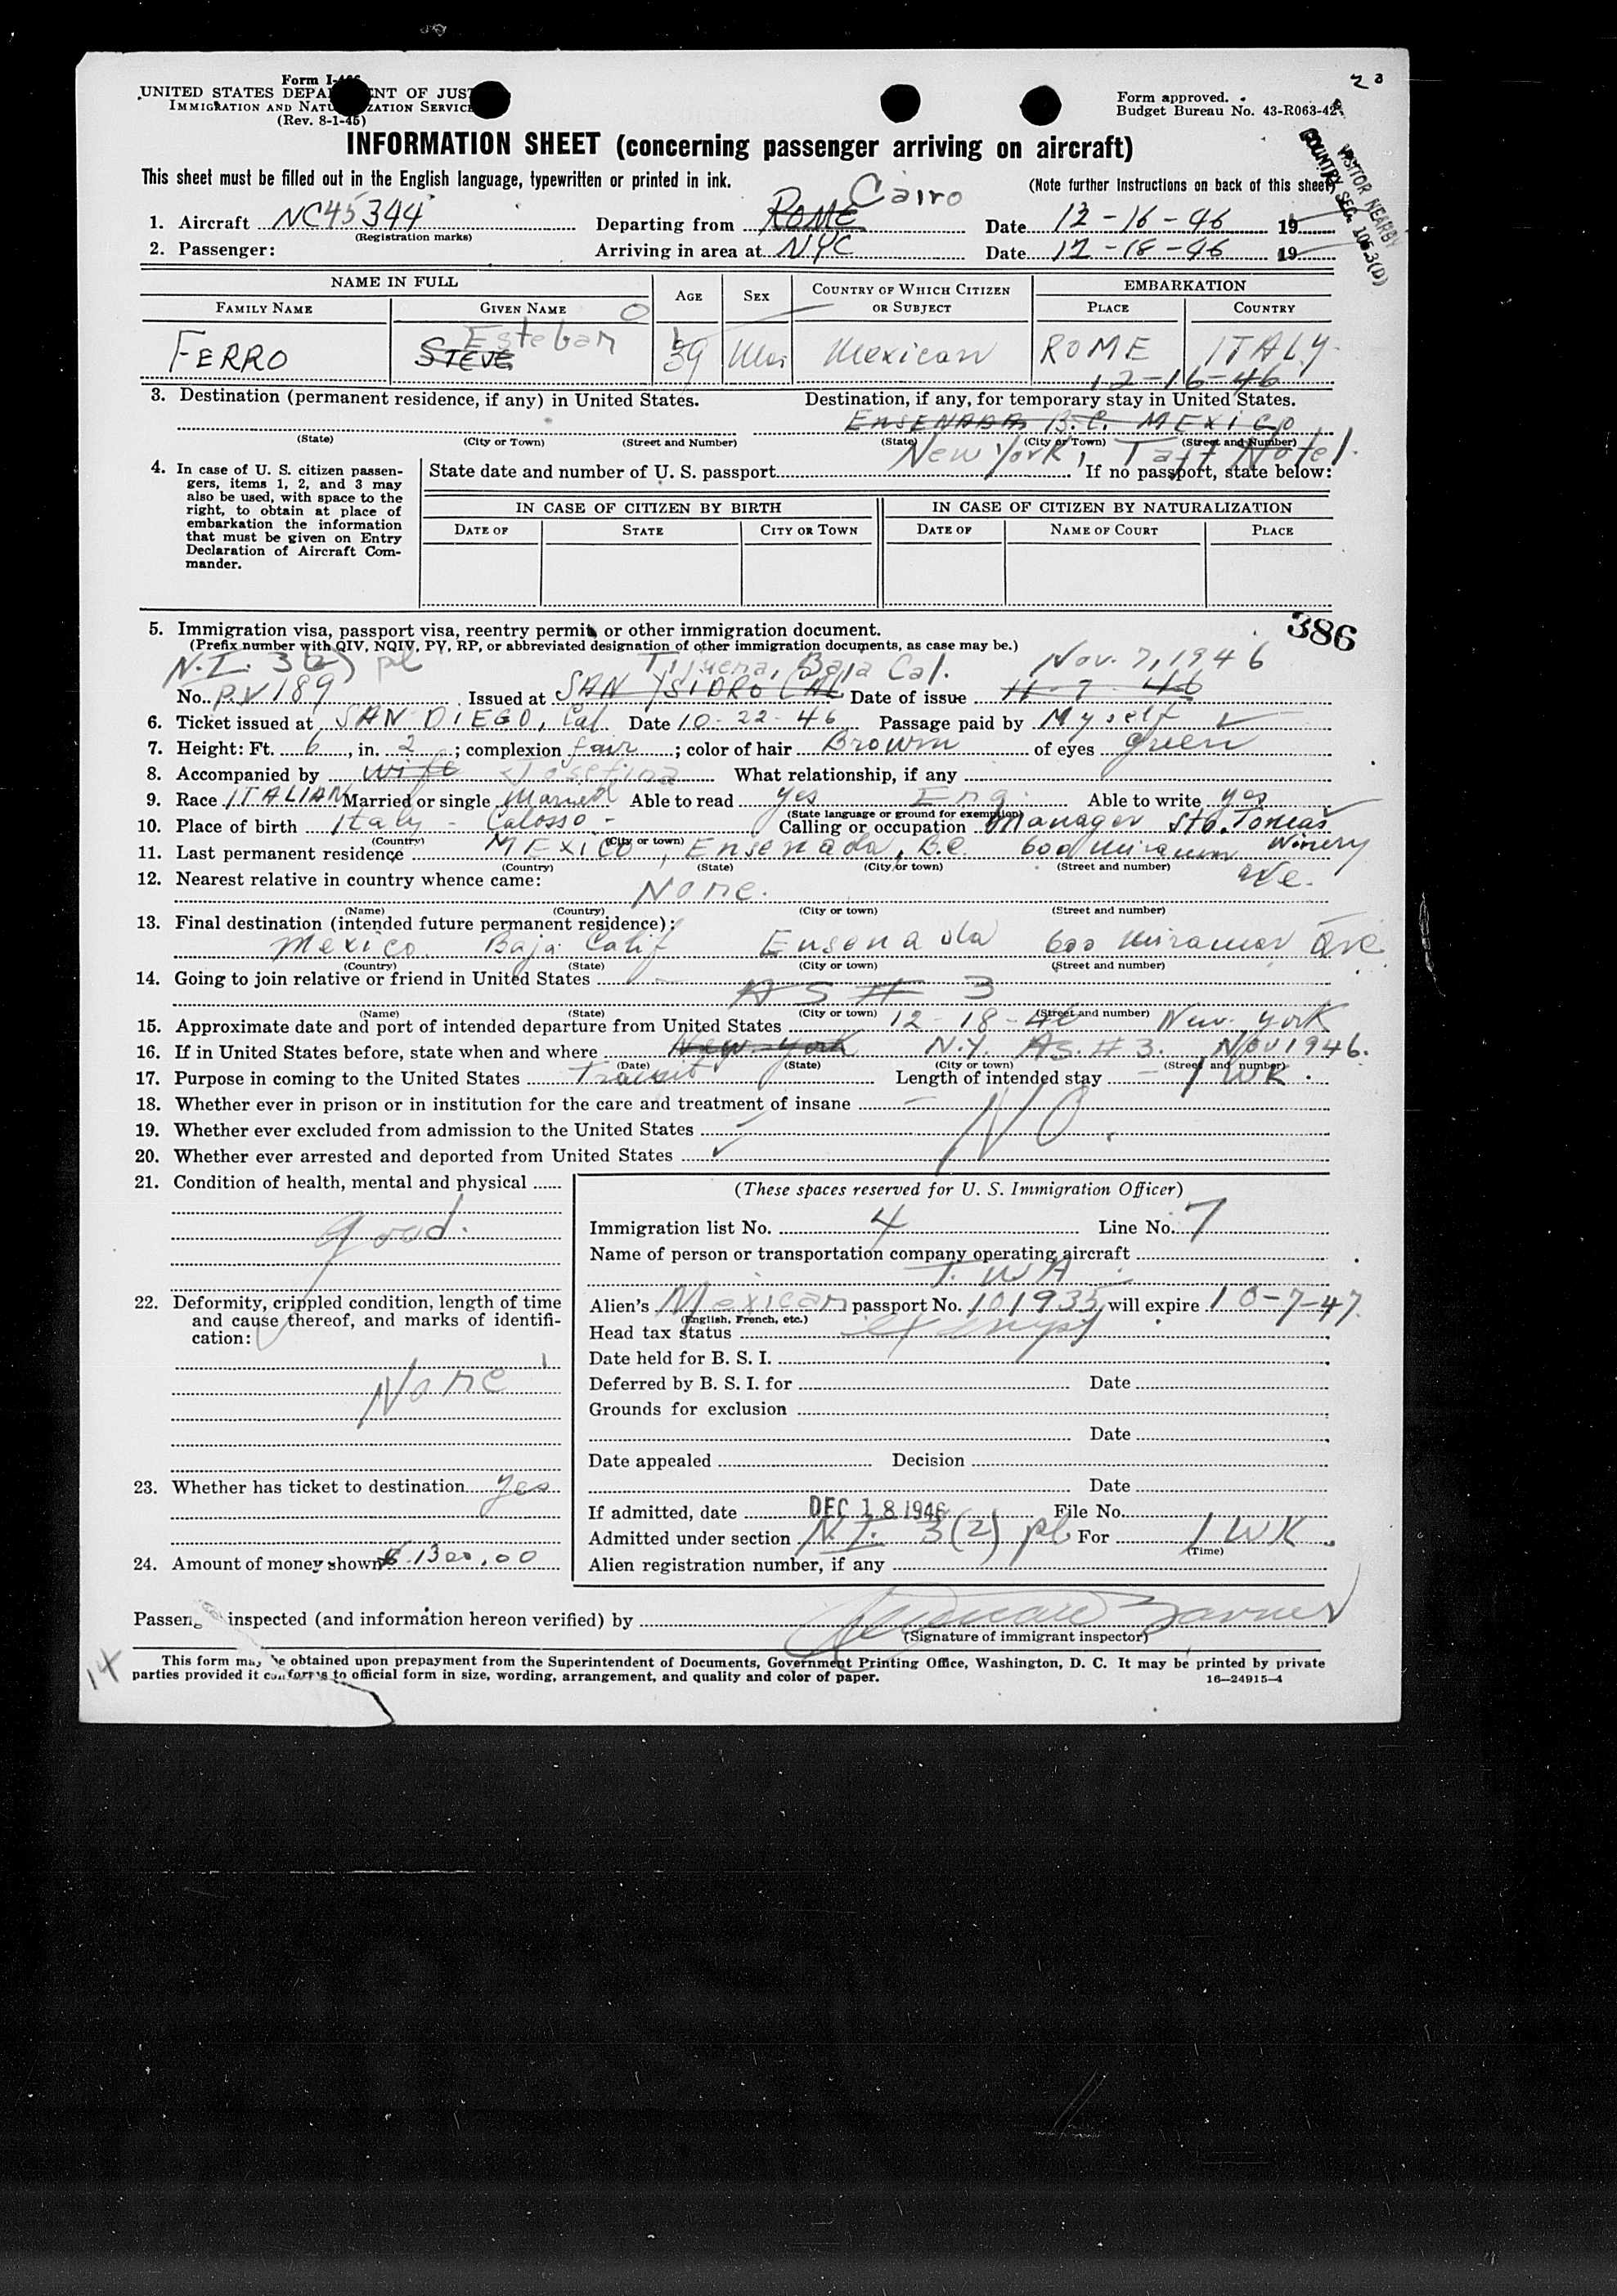 23
Form I-466
UNITED STATES DEPARTMENT OF JUSTICE
IMMIGRATION AND NATURALIZATION SERVICE
(Rev. 8-1-45)
Form approved.
Budget Bureau No. 43-R063-42
INFORMATION SHEET (concerning passenger arriving on aircraft)
This sheet must be filled out in the English language, typewritten or printed in ink.
(Note further instructions on back of this sheet)
VISITOR NEARBY
COUNTRY SEC. 105.3(D)
1. Aircraft NC45344 Departing from ROME Cairo Date 12-16-46 19
(Registration marks)
2. Passenger: Arriving in area at NYC Date 12-18-46 19
NAME IN FULL AGE SEX COUNTRY OF WHICH CITIZEN OR SUBJECT EMBARKATION
FAMILY NAME GIVEN NAME PLACE COUNTRY
FERRO STEVE Esteban 39 Mexican ROME ITALY
12-16-46
3. Destination (permanent residence, if any) in United States. Destination, if any, for temporary stay in United States.
ENSENADA B.C. MEXICO
(State) (City or Town) (Street and Number) (State) (City or Town) (Street and Number)
New York, Taft Hotel.
4. In case of U. S. citizen passengers, items 1, 2, and 3 may also be used, with space to the right, to obtain at place of embarkation the information that must be given on Entry Declaration of Aircraft Commander.
State date and number of U. S. passport If no passport, state below:
IN CASE OF CITIZEN BY BIRTH IN CASE OF CITIZEN BY NATURALIZATION
DATE OF STATE CITY OR TOWN DATE OF NAME OF COURT PLACE
386
5. Immigration visa, passport visa, reentry permit or other immigration document.
(Prefix number with QIV, NQIV, PV, RP, or abbreviated designation of other immigration documents, as case may be.)
N.I. 3(2) pl Tijuena, Baja Cal. Nov. 7, 1946
No. P.V 189 Issued at SAN YSIDRO CAL Date of issue 11-7-46
6. Ticket issued at SAN DIEGO, Cal Date 10-22-46 Passage paid by Myself
7. Height: Ft. 6, in. 2; complexion fair; color of hair Brown of eyes green
8. Accompanied by wife Josefina What relationship, if any
9. Race ITALIAN Married or single Married Able to read yes Eng. Able to write yes
(State language or ground for exemption)
10. Place of birth Italy - Calosso - Calling or occupation Manager Sto. Tomas Winery
(Country) (City or town)
11. Last permanent residence MEXICO, Ensenada, B.C. 600 Miramar ave.
(Country) (State) (City or town) (Street and number)
12. Nearest relative in country whence came: None.
(Name) (Country) (City or town) (Street and number)
13. Final destination (intended future permanent residence):
Mexico Baja Calif Ensenada 600 Miramar Ave
(Country) (State) (City or town) (Street and number)
14. Going to join relative or friend in United States
AS # 3
(Name) (State) (City or town) (Street and number)
15. Approximate date and port of intended departure from United States 12-18-46 New York
16. If in United States before, state when and where New York N.Y. As. # 3. Nov 1946.
(Date) (State) (City or town) (Street and number)
17. Purpose in coming to the United States Transit Length of intended stay 1 WK.
18. Whether ever in prison or in institution for the care and treatment of insane
19. Whether ever excluded from admission to the United States NO.
20. Whether ever arrested and deported from United States
21. Condition of health, mental and physical
good.
22. Deformity, crippled condition, length of time and cause thereof, and marks of identification:
None
23. Whether has ticket to destination yes
24. Amount of money shown $1300.00
(These spaces reserved for U. S. Immigration Officer)
Immigration list No. 4 Line No. 7
Name of person or transportation company operating aircraft
T. W A
Alien's Mexican passport No. 101935, will expire 10-7-47.
(English, French, etc.)
Head tax status exempt
Date held for B. S. I.
Deferred by B. S. I. for Date
Grounds for exclusion
Date
Date appealed Decision
Date
If admitted, date DEC 18 1946 File No.
Admitted under section N.I. 3(2) pl For 1 WK.
(Time)
Alien registration number, if any
Passenger inspected (and information hereon verified) by
(Signature of immigrant inspector)
14
This form may be obtained upon prepayment from the Superintendent of Documents, Government Printing Office, Washington, D. C. It may be printed by private
parties provided it conforms to official form in size, wording, arrangement, and quality and color of paper.
16—24915-4